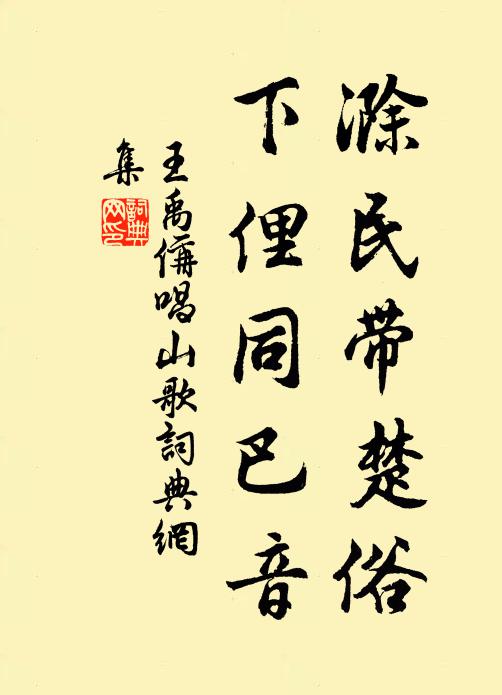 滁民带楚俗
下俚同巴音
王禹偁唱山歌詞典網
集
詞典
网印